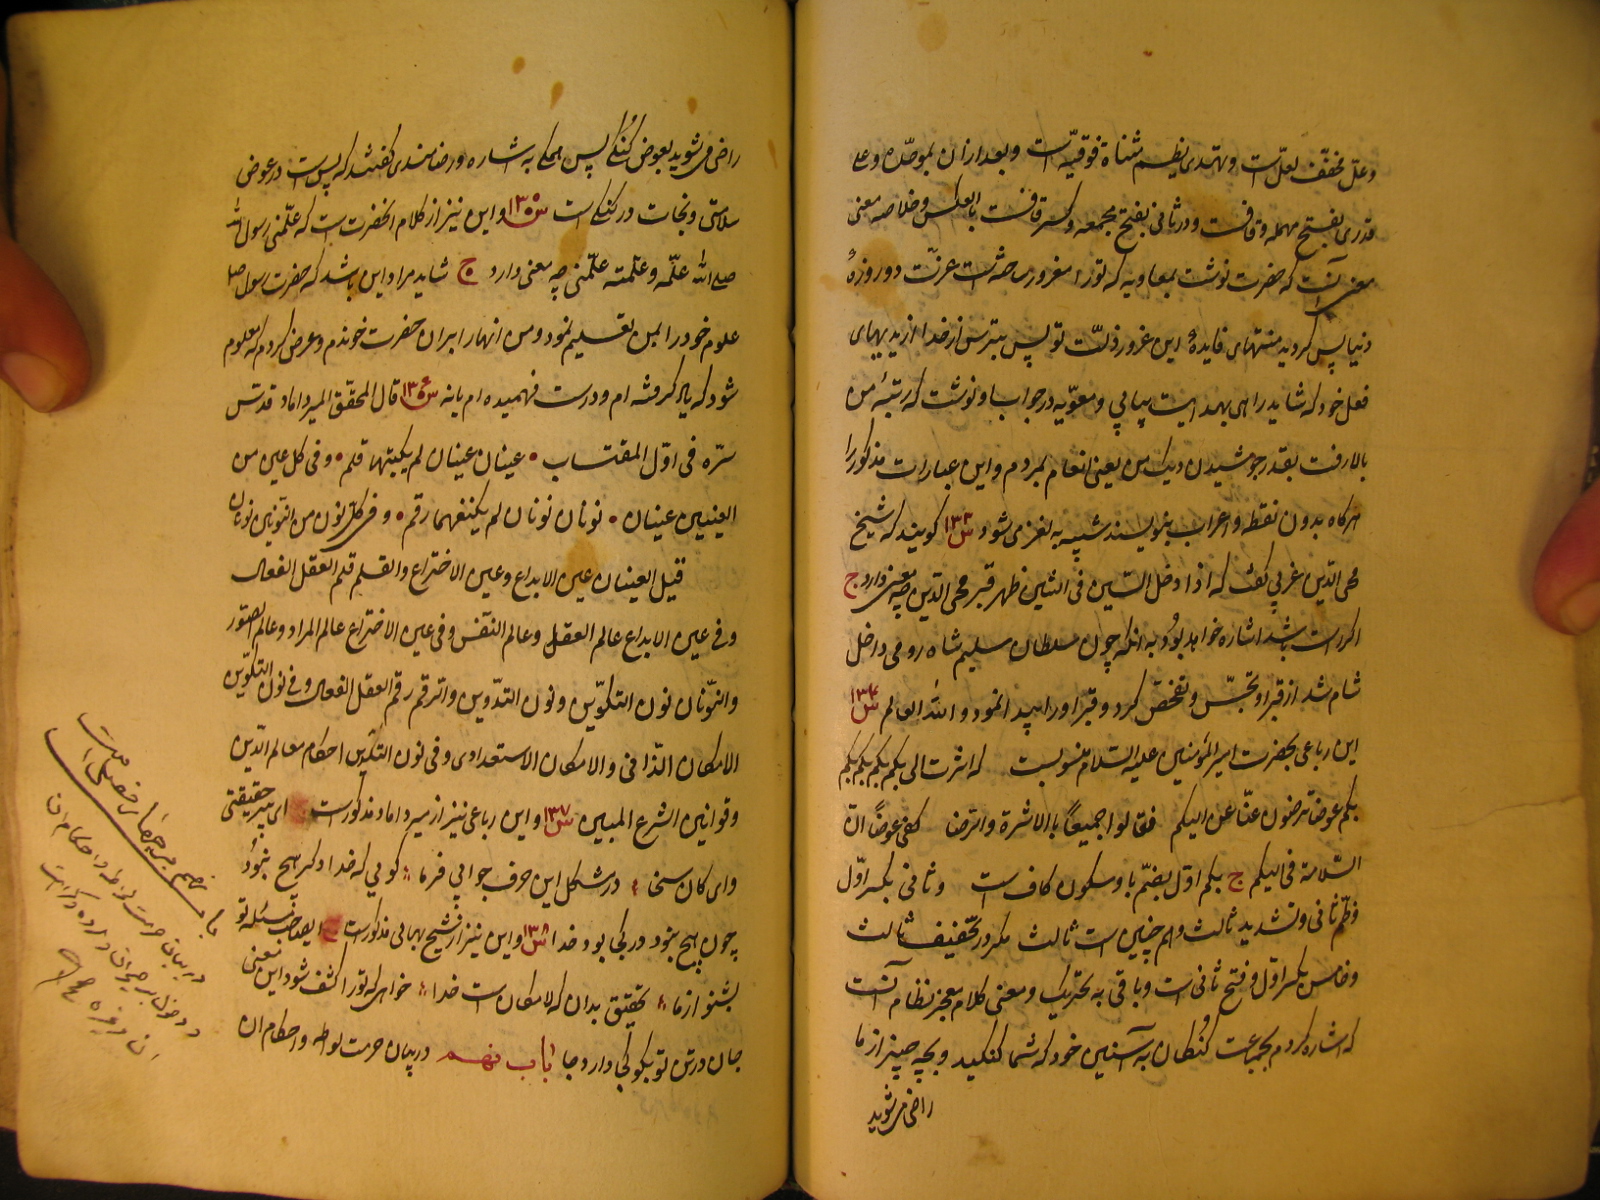 وعلّ مخفّف لعلّ است وبهتدی بضم مثناة فوقیّه است وبعد ازان بموحّده وعلی
قدری بفتح مهمله وقافست ودر ثانی بفتح معجمه وکسر قافست بالعکس وخلاصه معنی
معنی آنست که حضرت نوشت بمعاویه که تو را مغرور ساخته است عزّت دو روزهٔ
دنیا پس کردید منتهای فایدهٔ این غرور ذلّت تو پس بترس از خدا از بدیهای
فعل خود که شاید راهی بهدایت بیابی ومعویه در جواب او نوشت که رتبهٔ من
بالا رفت بقدر جوشیدن دیک من یعنی انعام بمردم واین عبارات مذکور را
هرکاه بدون نقطه واعراب بنویسند شبیه به لغزی شود س۱۳۳ کویند که شیخ
محی الدّین مغربی کفت که اذا دخل السّین فی الشین ظهر قبر محی الدّین چه معنی دارد ج
اکر راست باشد اشاره خواهد بود به انکه چون سلطان سلیم شاه رومی داخل
شام شد از قبر او تجسّس وتفحّص کرد وقبر او را پیدا نمود والله العالم س۱۳۴
این رباعی بحضرت امیرالمؤمنین علیه السّلام منسوبست که اشرت الی بکم بکم بکم بکم
بکم عوضا ترضون عنّا عن الیکم فقالوا جمیعًا بالاشرة والرّضا کفی عوضًا انّ
السّلامة فی البکم ج بکم اوّل بضمّ با وسکون کاف است وثانی بکسر اوّل
وضمّ ثانی وتشدید ثالث وهم چنین است ثالث مکر در تخفیف ثالث
وخامس بکسر اوّل وفتح ثانی است وباقی به تحریک ومعنی کلام معجز نظام آنست
که اشاره کردم بجماعت کنکان به آستین خود که شما کنکید وبچه چیز از ما
راضی می شوید
راضی می شوید بعوض کنکی پس همکی به اشاره ورضامندی کفتند که بس است در عوض
سلامتی ونجات در کنکی است س۱۳۵ واین نیز از کلام انحضرت است که علّمنی رسول الله
صلی الله علّمه وعلّمته علّمنی چه معنی دارد ج شاید مراد این باشد که حضرت رسول صلی
علوم خود را بمن تعلیم نمود ومن انها را بران حضرت خوندم وعرض کردم که معلوم
شود که یاد کرفته ام ودرست فهمیده ام یا نه س۱۳۶ قال المحقّق المیر داماد قدّس
سرّه فی اوّل القبسات • عینان عینان لم یکتبهما قلم • وفی کل عین من
العینین عینان • نونان نونان لم یکنفهما رقم • وفی کلّ نون من النونین نونان
قیل العینان عین الابداع وعین الاختراع والقلم قلم العقل الفعال
وفی عین الابداع عالم العقل وعالم النفس وفی عین الاختراع عالم المراد وعالم الصّور
والنّونان نون التکوین ونون التّدوین والرقم رقم العقل الفعال وفی نون التکوین
الامکان الذّاتی والامکان الاستعدادی وفی نون التدوین احکام معالم الدّین
وقوانین الشرع المبین س۱۳۷ واین رباعی نیز از میر داماد مذکور است ای سرّ حقیقتی
وای کان سخا در مشکل این حرف جوابی فرما کویی که خدا ودکر هیچ نبود
چون هیچ نبود در کجا بود خدا س۱۳۸ واین نیز از شیخ بهایی مذکور است ای صاحب مسئله تو
بشنو از ما تحقیق بدان که لامکان است خدا خواهی که تو را کشف شود این معنی
جان در تن تو بکو کجا دارد جا باب نهم در بیان حرمت لواطه واحکام ان
باب نهم
در بیان حرمت لواطه واحکام ان